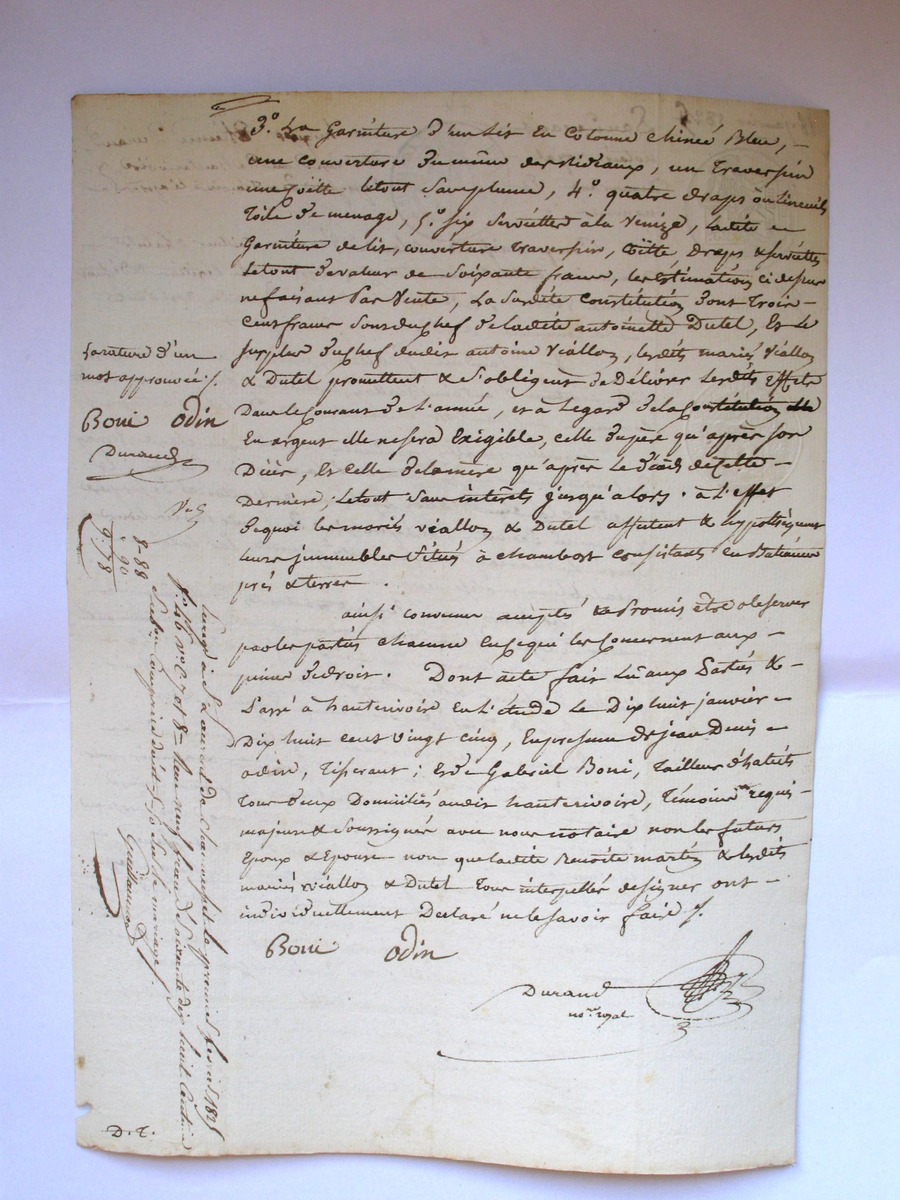 3.º La Garniture d'un Lit En Cotonne chineé Bleu, -
une couverture du même des Rideaux, un Traversin
une Coëtte letout Sans plume, 4.º quatre draps ou linceuils
Toile de menage, 5.º six Serviettes à la Venize, ladite
Garniture delit, couverture Traversin, Coëtte, Draps & serviettes
Letout devaleur de Soixante francs, les Estimations ci dessus
nefaisant Pas Vente, La Susdite Constitution dont Trois -
Cent francs Sous du chef de ladite antoinette Dutel, Et le
surplus duchef dudit antoine Viallon, lesdits mariés Viallon
& Dutel promettent & s'obligent de Délivrer lesdits Effets
Dans le Courant de l'année, et à legard de la Constitution
En argent elle nesera Exigible, celle dupère qu'après son
Décès, Et Celle delamère qu'après le décès decette -
Derniere, letout Sans interets jusqu'alors. à L'effet
dequoi les mariés Viallon & Dutel affectent & hypothèquent
leurs immeubles Situés à chambost Consistants en Batiments
prés & terres.
ainsi convenu acceptés & Promis être observer
par les parties chacune En cequi les Concernent aux -
peines de droit. Dont acte fait Lu aux Parties & -
Passé à hauterivoire En l'étude le Dix huit janvier -
Dix huit cent vingt cinq, En presence de jean Denis -
odin, Tisserant; Et de Gabriel Boni, Tailleur d'habits
Tous deux Domiciliés audit hauterivoire, Témoins requis -
majeurs & Soussignés avec nous notaire non les futurs
Epoux & Epouse non que ladite Benoite martin & lesdits
mariés Viallon & Dutel Tous interpellés designer ont -
individuellement Declaré ne le savoir faire ./.
Boni odin
Durand
no.re royal
La rature d'un
mot approuvée ./.
Boni odin
Durand
8-88
, 90
9.78
Enregé à St Laurent de Chamousset le premier fevrier 1825
fo 146 vo C. 7 et 8 = Reçu neuf francs Soixante dix huit Centimes
Subvon Comprise
Guillaumot
D. T.